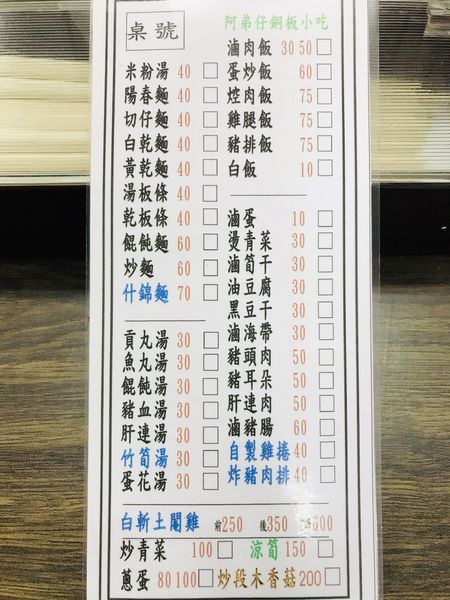 桌號
米粉湯 40
陽春麵 40
切仔麵 40
白乾麵 40
黃乾麵 40
湯板條 40
乾板條 40
餛飩麵 60
炒麵 60
什錦麵 70
貢丸湯 30
魚丸湯 30
餛飩湯 30
豬血湯 30
肝連湯 30
竹筍湯 30
蛋花湯 30
阿弟仔銅板小吃
滷肉飯 30 50
蛋炒飯 60
焢肉飯 75
雞腿飯 75
豬排飯 75
白飯 10
滷蛋 10
燙青菜 30
滷筍干 30
油豆腐 30
黑豆干 30
滷海帶 30
豬頭肉 50
豬耳朵 50
肝連肉 50
滷豬腸 60
自製雞捲 40
炸豬肉排 40
白斬土閹雞 前250 後350 600
炒青菜 100 涼筍 150
蔥蛋 80 100 炒段木香菇 200